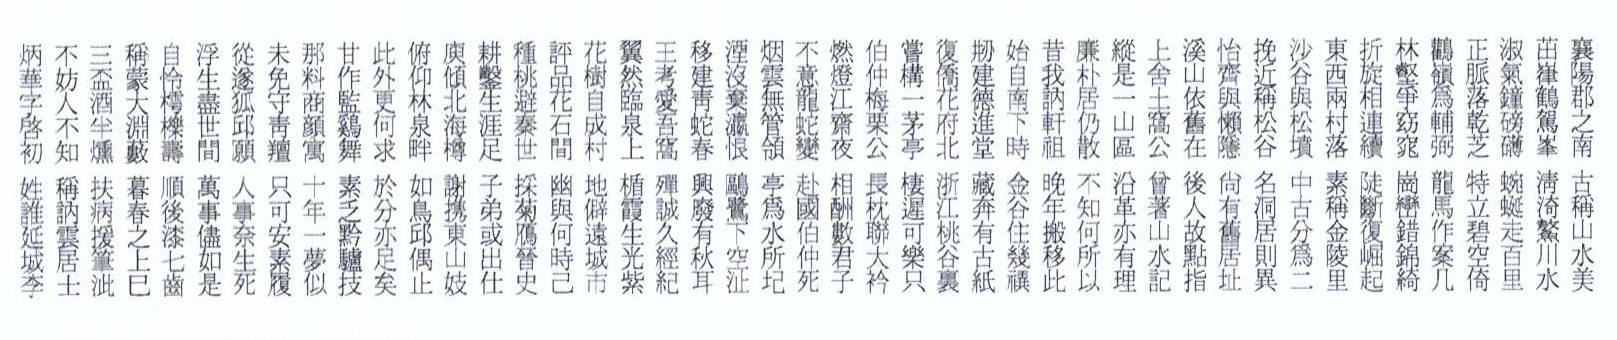 襄陽郡之南 古稱山水美
茁嵂鶴駕峯 淸渏鰲川水
淑氣鐘磅礴 蜿蜒走百里
正脈落乾芝 特立碧空倚
鸛領爲輔弼 龍馬作案几
林壑爭窈窕 崗巒錯錦綺
折旋相連續 陡斷復崛起
東西兩村落 素稱金陵里
沙谷與松墳 中古分爲二
挽近稱松谷 名洞居則異
怡齊與懶隱 尙有舊居址
溪山依舊在 後人故點指
上舍土窩公 曾著山水記
縱是一山區 沿革亦有理
廉朴居仍散 不知何所以
昔我訥軒祖 晚年搬移此
始自南下時 金谷住幾禩
刱建德進堂 藏弆有古紙
復僑花府北 浙江桃谷裏
嘗構一茅亭 棲遲可樂只
伯仲梅栗公 長枕聯大衿
燃燈江齋夜 相酬數君子
不意龍蛇變 赴國伯仲死
烟雲無管領 亭爲水所圮
湮沒棄瀛恨 鷗鷺下空沚
移建靑蛇春 興廢有秋耳
王考愛吾窩 殫誠久經紀
翼然臨泉上 楯霞生光紫
花樹自成村 地僻遠城市
評品花石間 幽與何時已
種桃避秦世 採菊鴈晉史
耕鑿生涯足 子弟或出仕
庾傾北海樽 謝携東山妓
俯仰林泉畔 如鳥邱偶止
此外更何求 於分亦足矣
甘作監鷄舞 素乏黔驢技
那料商顔寓 十年一夢似
未免守靑氊 只可安素履
從遂狐邱願 人事奈生死
浮生盡世間 萬事儘如是
自怜樗櫟壽 順後漆七齒
稱蒙大淵獻 暮春之上巳
三盃酒半燻 扶病援筆泚
不妨人不知 稱訥雲居士
炳華字啓初 姓誰延城李